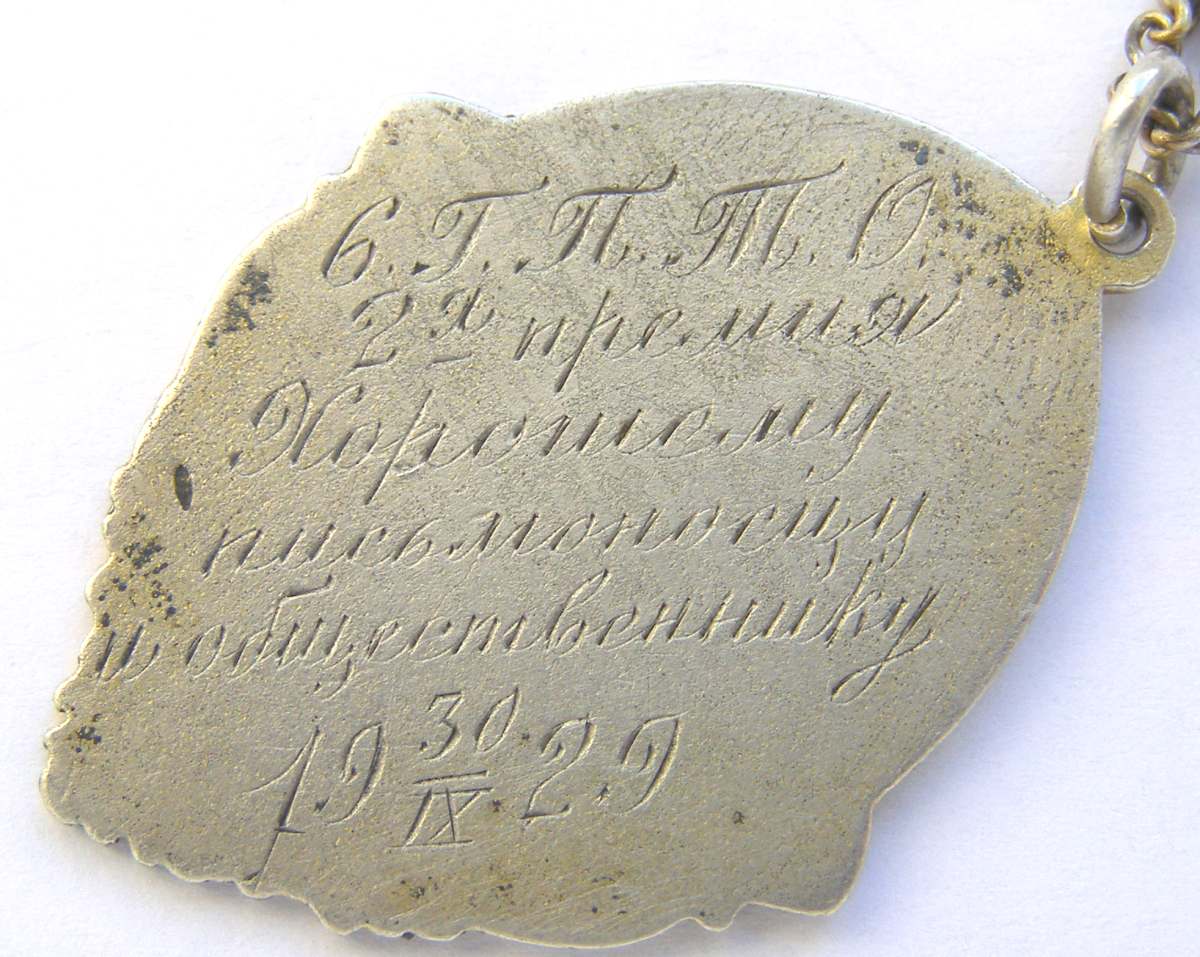 6. Г. П. Т. О.
2я премия
Хорошому
письмоносцу
и общественнику
19 30/IX 29